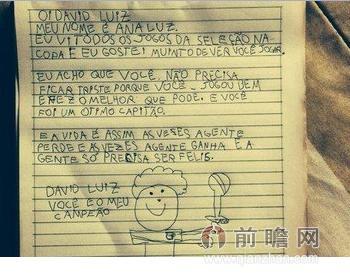 OI DAVID LUIZ
MEU NOME É ANA LUZ.
EU VI TODOS OS JOGOS DA SELEÇÃO NA
COPA E EU GOSTEI MUINTO DE VER VOCÊ JOGAR.
EU ACHO QUE VOCÊ NÃO PRECISA
FICAR TRISTE PORQUE VOCÊ JOGOU BEM
E FEZ O MELHOR QUE PODE. E VOCÊ
FOI UM OTIMO CAPITÃO.
E A VIDA É ASSIM AS VESES AGENTE
PERDE E AS VEZES AGENTE GANHA E A
GENTE SÓ PRECISA SER FELIS.
DAVID LUIZ
VOCÊ E O MEU
CAMPEÃO
前瞻网